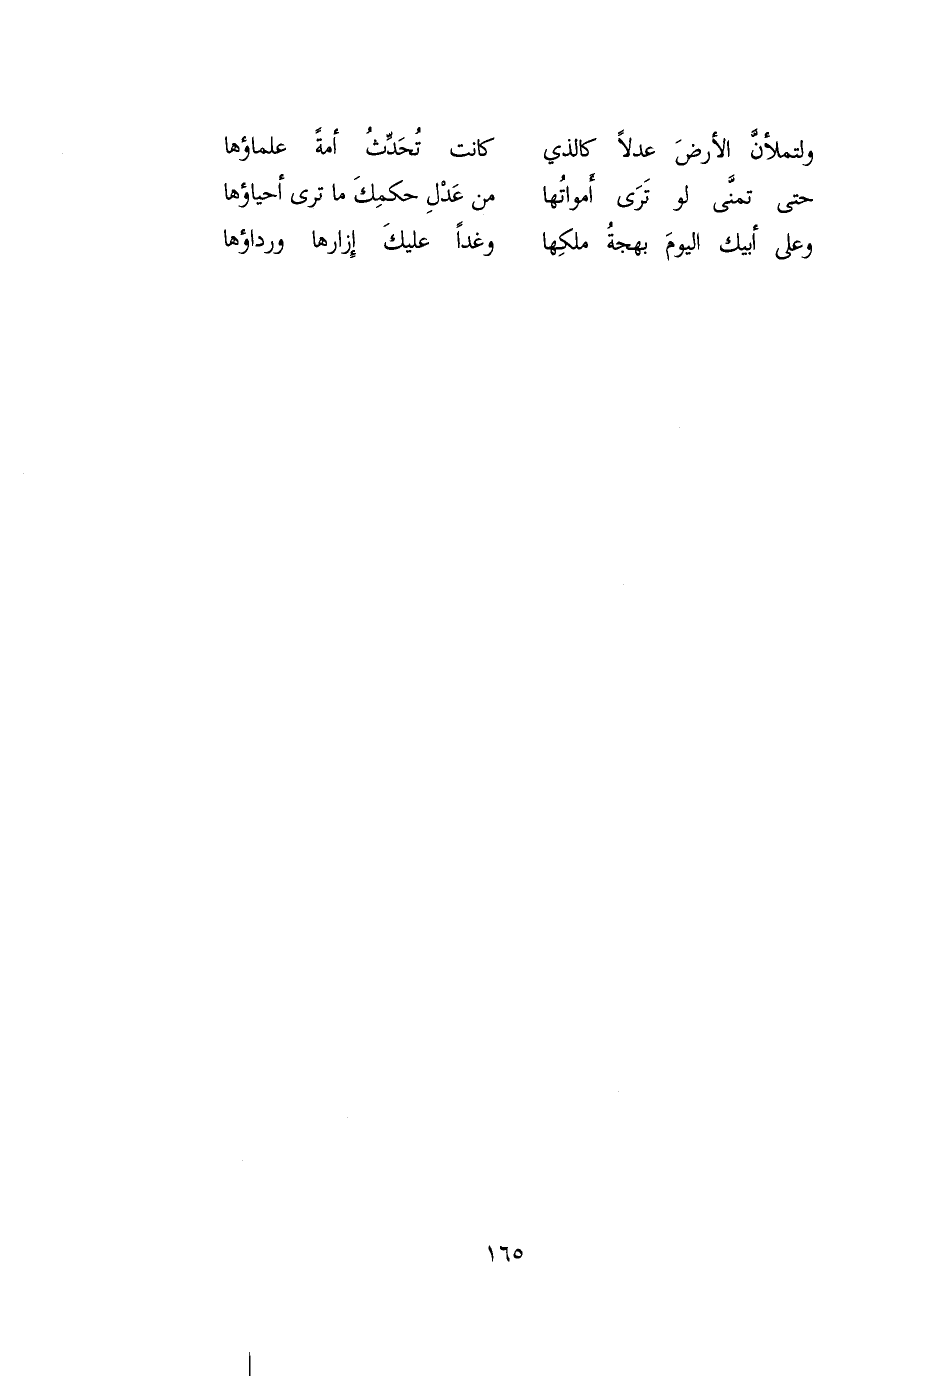 ولتملأنَّ الأرضَ عدلاً كالذي كانت تُحَدِّثُ أمةً علماؤها
حتى تمنَّى لو تَرَى أَمواتُها من عَدْلِ حكمِكَ ما ترى أحياؤها
وعلى أبيك اليومَ بهجةُ ملكِها وغداً عليكَ إزارها ورداؤها
١٦٥